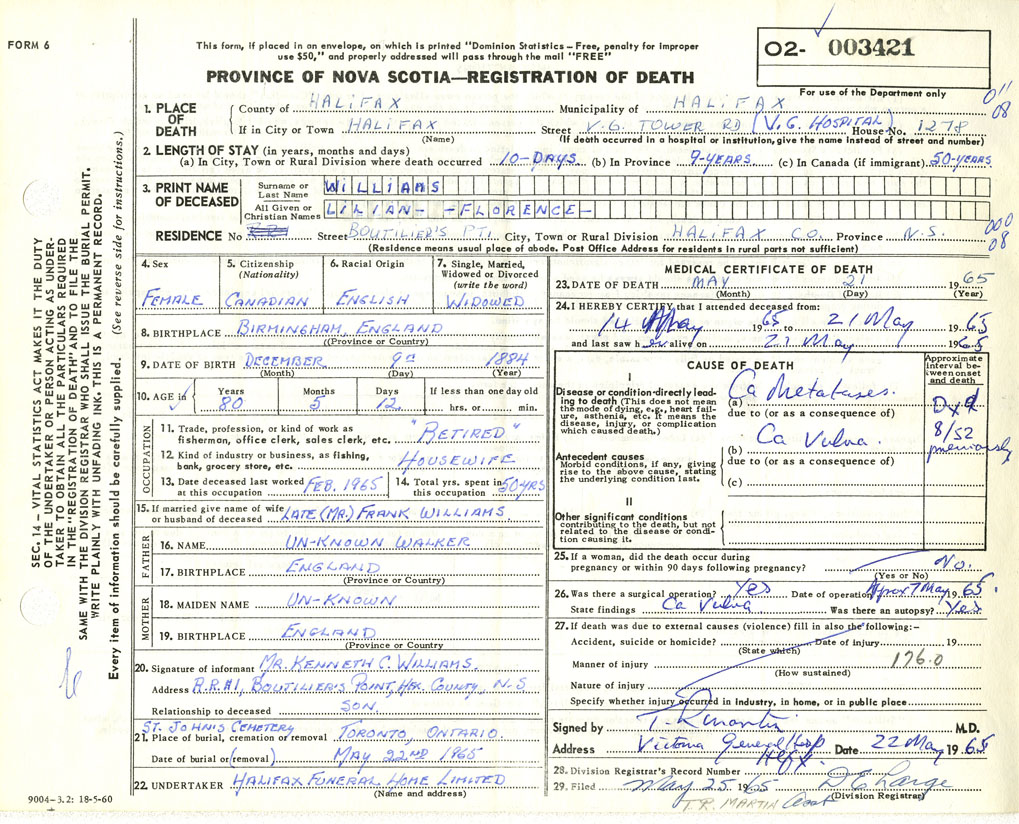 FORM 6
This form, if placed in an envelope, on which is printed "Dominion Statistics – Free, penalty for improper
use $50," and properly addressed will pass through the mail "FREE"
PROVINCE OF NOVA SCOTIA—REGISTRATION OF DEATH
02- 003421
For use of the Department only
011
08
1. PLACE OF DEATH
County of HALIFAX Municipality of HALIFAX
If in City or Town HALIFAX Street V.G. TOWER RD (V.G. HOSPITAL) House No. 1278
(Name) (If death occurred in a hospital or institution, give the name instead of street and number)
2. LENGTH OF STAY (in years, months and days)
(a) In City, Town or Rural Division where death occurred 10-DAYS (b) In Province 9-YEARS (c) In Canada (if immigrant) 50-YEARS
3. PRINT NAME OF DECEASED
Surname or Last Name WILLIAMS
All Given or Christian Names LILIAN- -FLORENCE-
000
08
RESIDENCE No Street BOUTILIER'S PT. City, Town or Rural Division HALIFAX CO. Province N.S.
(Residence means usual place of abode. Post Office Address for residents in rural parts not sufficient)
4. Sex FEMALE
5. Citizenship (Nationality) CANADIAN
6. Racial Origin ENGLISH
7. Single, Married, Widowed or Divorced (write the word) WIDOWED
8. BIRTHPLACE BIRMINGHAM, ENGLAND
(Province or Country)
9. DATE OF BIRTH DECEMBER 9TH 1884
(Month) (Day) (Year)
10. AGE in Years 80 Months 5 Days 12 If less than one day old hrs. or min.
OCCUPATION
11. Trade, profession, or kind of work as
fisherman, office clerk, sales clerk, etc. "RETIRED"
12. Kind of industry or business, as fishing,
bank, grocery store, etc. HOUSEWIFE
13. Date deceased last worked at this occupation FEB. 1965
14. Total yrs. spent in this occupation 50YRS
15. If married give name of wife
or husband of deceased LATE (MR.) FRANK WILLIAMS
FATHER
16. NAME UN-KNOWN WALKER
17. BIRTHPLACE ENGLAND
(Province or Country)
MOTHER
18. MAIDEN NAME UN-KNOWN
19. BIRTHPLACE ENGLAND
(Province or Country)
20. Signature of informant MR. KENNETH C. WILLIAMS.
Address R.R#1, BOUTILIER'S POINT, HFX. COUNTY, N.S
Relationship to deceased SON.
ST. JOHN'S CEMETERY
21. Place of burial, cremation or removal TORONTO, ONTARIO.
Date of burial or (removal) MAY 22ND 1965
22. UNDERTAKER HALIFAX FUNERAL HOME LIMITED
(Name and address)
9004–3.2: 18-5-60
MEDICAL CERTIFICATE OF DEATH
23. DATE OF DEATH MAY 21 1965
(Month) (Day) (Year)
24. I HEREBY CERTIFY that I attended deceased from:
14 May 1965 to 21 May 1965
and last saw her alive on 21 May 1965
CAUSE OF DEATH
Approximate interval between onset and death
I
Disease or condition directly leading to death (This does not mean
the mode of dying, e.g., heart failure, asthenia, etc. It means the
disease, injury, or complication
which caused death.)
(a) Ca Metastases.
due to (or as a consequence of)
Dxd
8/52
previously
Antecedent causes
Morbid conditions, if any, giving
rise to the above cause, stating
the underlying condition last.
(b) Ca Vulva.
due to (or as a consequence of)
(c)
II
Other significant conditions
contributing to the death, but not
related to the disease or condition causing it.
25. If a woman, did the death occur during
pregnancy or within 90 days following pregnancy? No.
(Yes or No)
26. Was there a surgical operation? Yes Date of operation Aprox 7 May 1965.
State findings Ca Vulva Was there an autopsy? Yes
27. If death was due to external causes (violence) fill in also the following:–
Accident, suicide or homicide? Date of injury 19
(State which)
Manner of injury 176.0
(How sustained)
Nature of injury
Specify whether injury occurred in industry, in home, or in public place
Signed by T. R. Martin M.D.
Address Victoria General Hosp Hfx. Date 22 May 1965
28. Division Registrar's Record Number
29. Filed May 25 1965 D E Large
(Division Registrar)
T.R. MARTIN
SEC. 14 – VITAL STATISTICS ACT MAKES IT THE DUTY
OF THE UNDERTAKER OR PERSON ACTING AS UNDERTAKER TO OBTAIN ALL THE PARTICULARS REQUIRED
IN THE "REGISTRATION OF DEATH" AND TO FILE THE
SAME WITH THE DIVISION REGISTRAR WHO SHALL ISSUE THE BURIAL PERMIT.
WRITE PLAINLY WITH UNFADING INK. THIS IS A PERMANENT RECORD.
Every item of information should be carefully supplied. (See reverse side for instructions.)